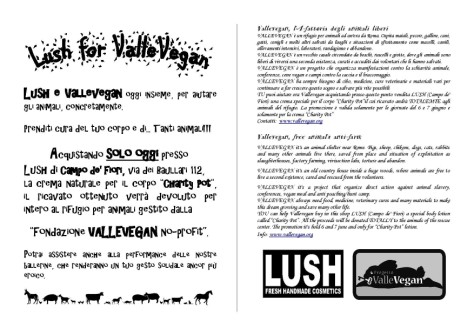 Lush for ValleVegan
LUSH e VALLEVEGAN oggi insieme, per aiutare
gli animali, concretamente.
Prenditi cura del tuo corpo e di.. Tanti animali!!!
Acquistando SOLO OGGI presso
LUSH di Campo de' Fiori, Via dei Baullari 112,
la crema naturale per il corpo "Charity Pot",
il ricavato ottenuto verrà devoluto per
intero al rifugio per animali gestito dalla
"Fondazione VALLEVEGAN no-profit".
Potrai assistere anche alla performance delle nostre
ballerine, che renderanno un tuo gesto solidale ancor più
eroico.
Vallevegan, l'A-fattoria degli animali liberi
VALLEVEGAN è un rifugio per animali ad ovest di Roma. Ospita maiali, pecore, galline, cani,
gatti, conigli e molti altri salvati da luoghi e situazioni di sfruttamento come macelli, canili,
allevamenti intensivi, laboratori, vandalismo e abbandono.
VALLEVEGAN è un vecchio casale circondato da boschi, ruscelli e grotte, dove gli animali sono
liberi di viversi una seconda esistenza, curati e accuditi dai volontari che li hanno salvati.
VALLEVEGAN è un progetto che organizza manifestazioni contro la schiavitù animale,
conferenze, cene vegan e campi contro la caccia e il bracconaggio.
VALLEVEGAN ha sempre bisogno di cibo, medicine, cure veterinarie e materiali vari per
continuare a far crescere questo sogno e salvare più vite possibili
TU puoi aiutare ora Vallevegan acquistando presso questo punto vendita LUSH (Campo de'
Fiori) una crema speciale per il corpo "Charity Pot" il cui ricavato andrà TOTALMENTE agli
animali del rifugio. La promozione è valida solamente per le giornate del 6 e 7 giugno e
solamente per la crema "Charity Pot"
Contatti: www.vallevegan.org
Vallevegan, free animals anti-farm
VALLEVEGAN it's an animal shelter near Rome. Pigs, sheep, chickens, dogs, cats, rabbits
and many other animals live there, saved from places and situations of exploitation as
slaughterhouses, factory farming, vivisection labs, torture and abandon.
VALLEVEGAN it's an old country house inside a huge woods, where animals are free to
live a second existence, cured and rescued from the volunteers.
VALLEVEGAN it's a project that organize direct action against animal slavery,
conference, vegan meal and anti poaching/hunt camp.
VALLEVEGAN always need food, medicine, veterinary cures and many materials to make
this dream growing and save many other life.
YOU can help Vallevegan buy in this shop LUSH (Campo de' Fiori) a special body lotion
called "Charity Pot". All the proceeds will be donated TOTALLY to the animals of the rescue
center. The promotion it's hold 6 and 7 june and only for "Charity Pot" lotion.
Info: www.vallevegan.org
LUSH
FRESH HANDMADE COSMETICS
Progetto
ValleVegan